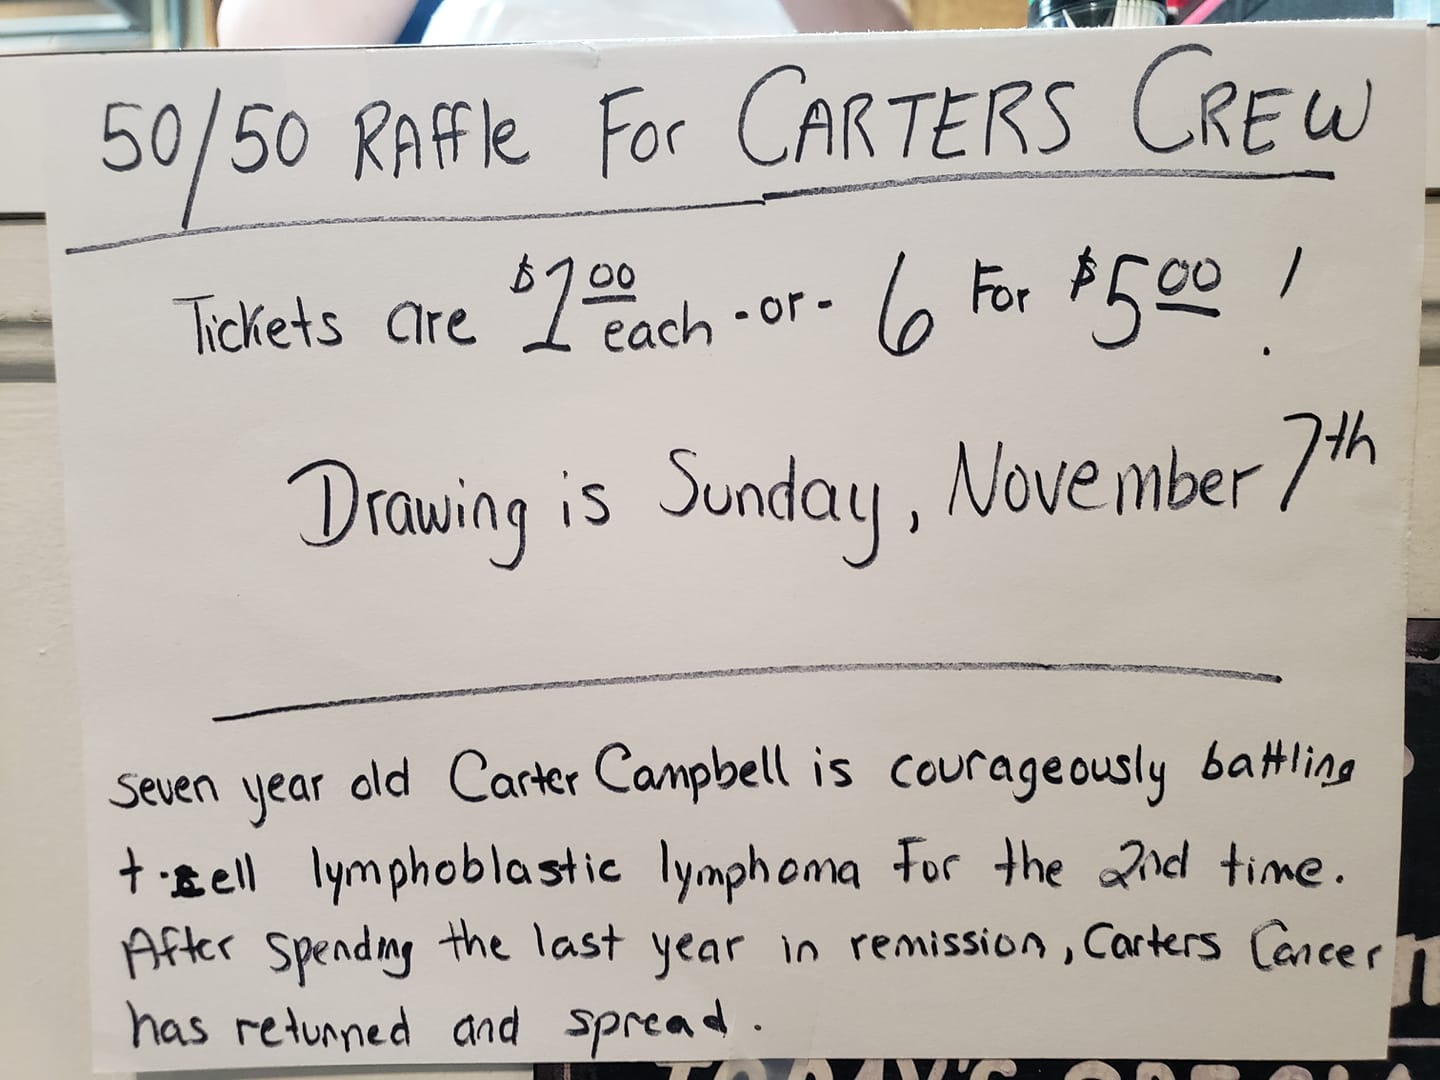 50/50 RAffle For CARTERS CREW
Tickets are $1.00 each -or- 6 For $5.00 !
Drawing is Sunday, November 7th
Seven year old Carter Campbell is courageously battling
t-cell lymphoblastic lymphoma for the 2nd time.
After spending the last year in remission, Carters Cancer
has returned and spread.
TODAY'S SPECIA